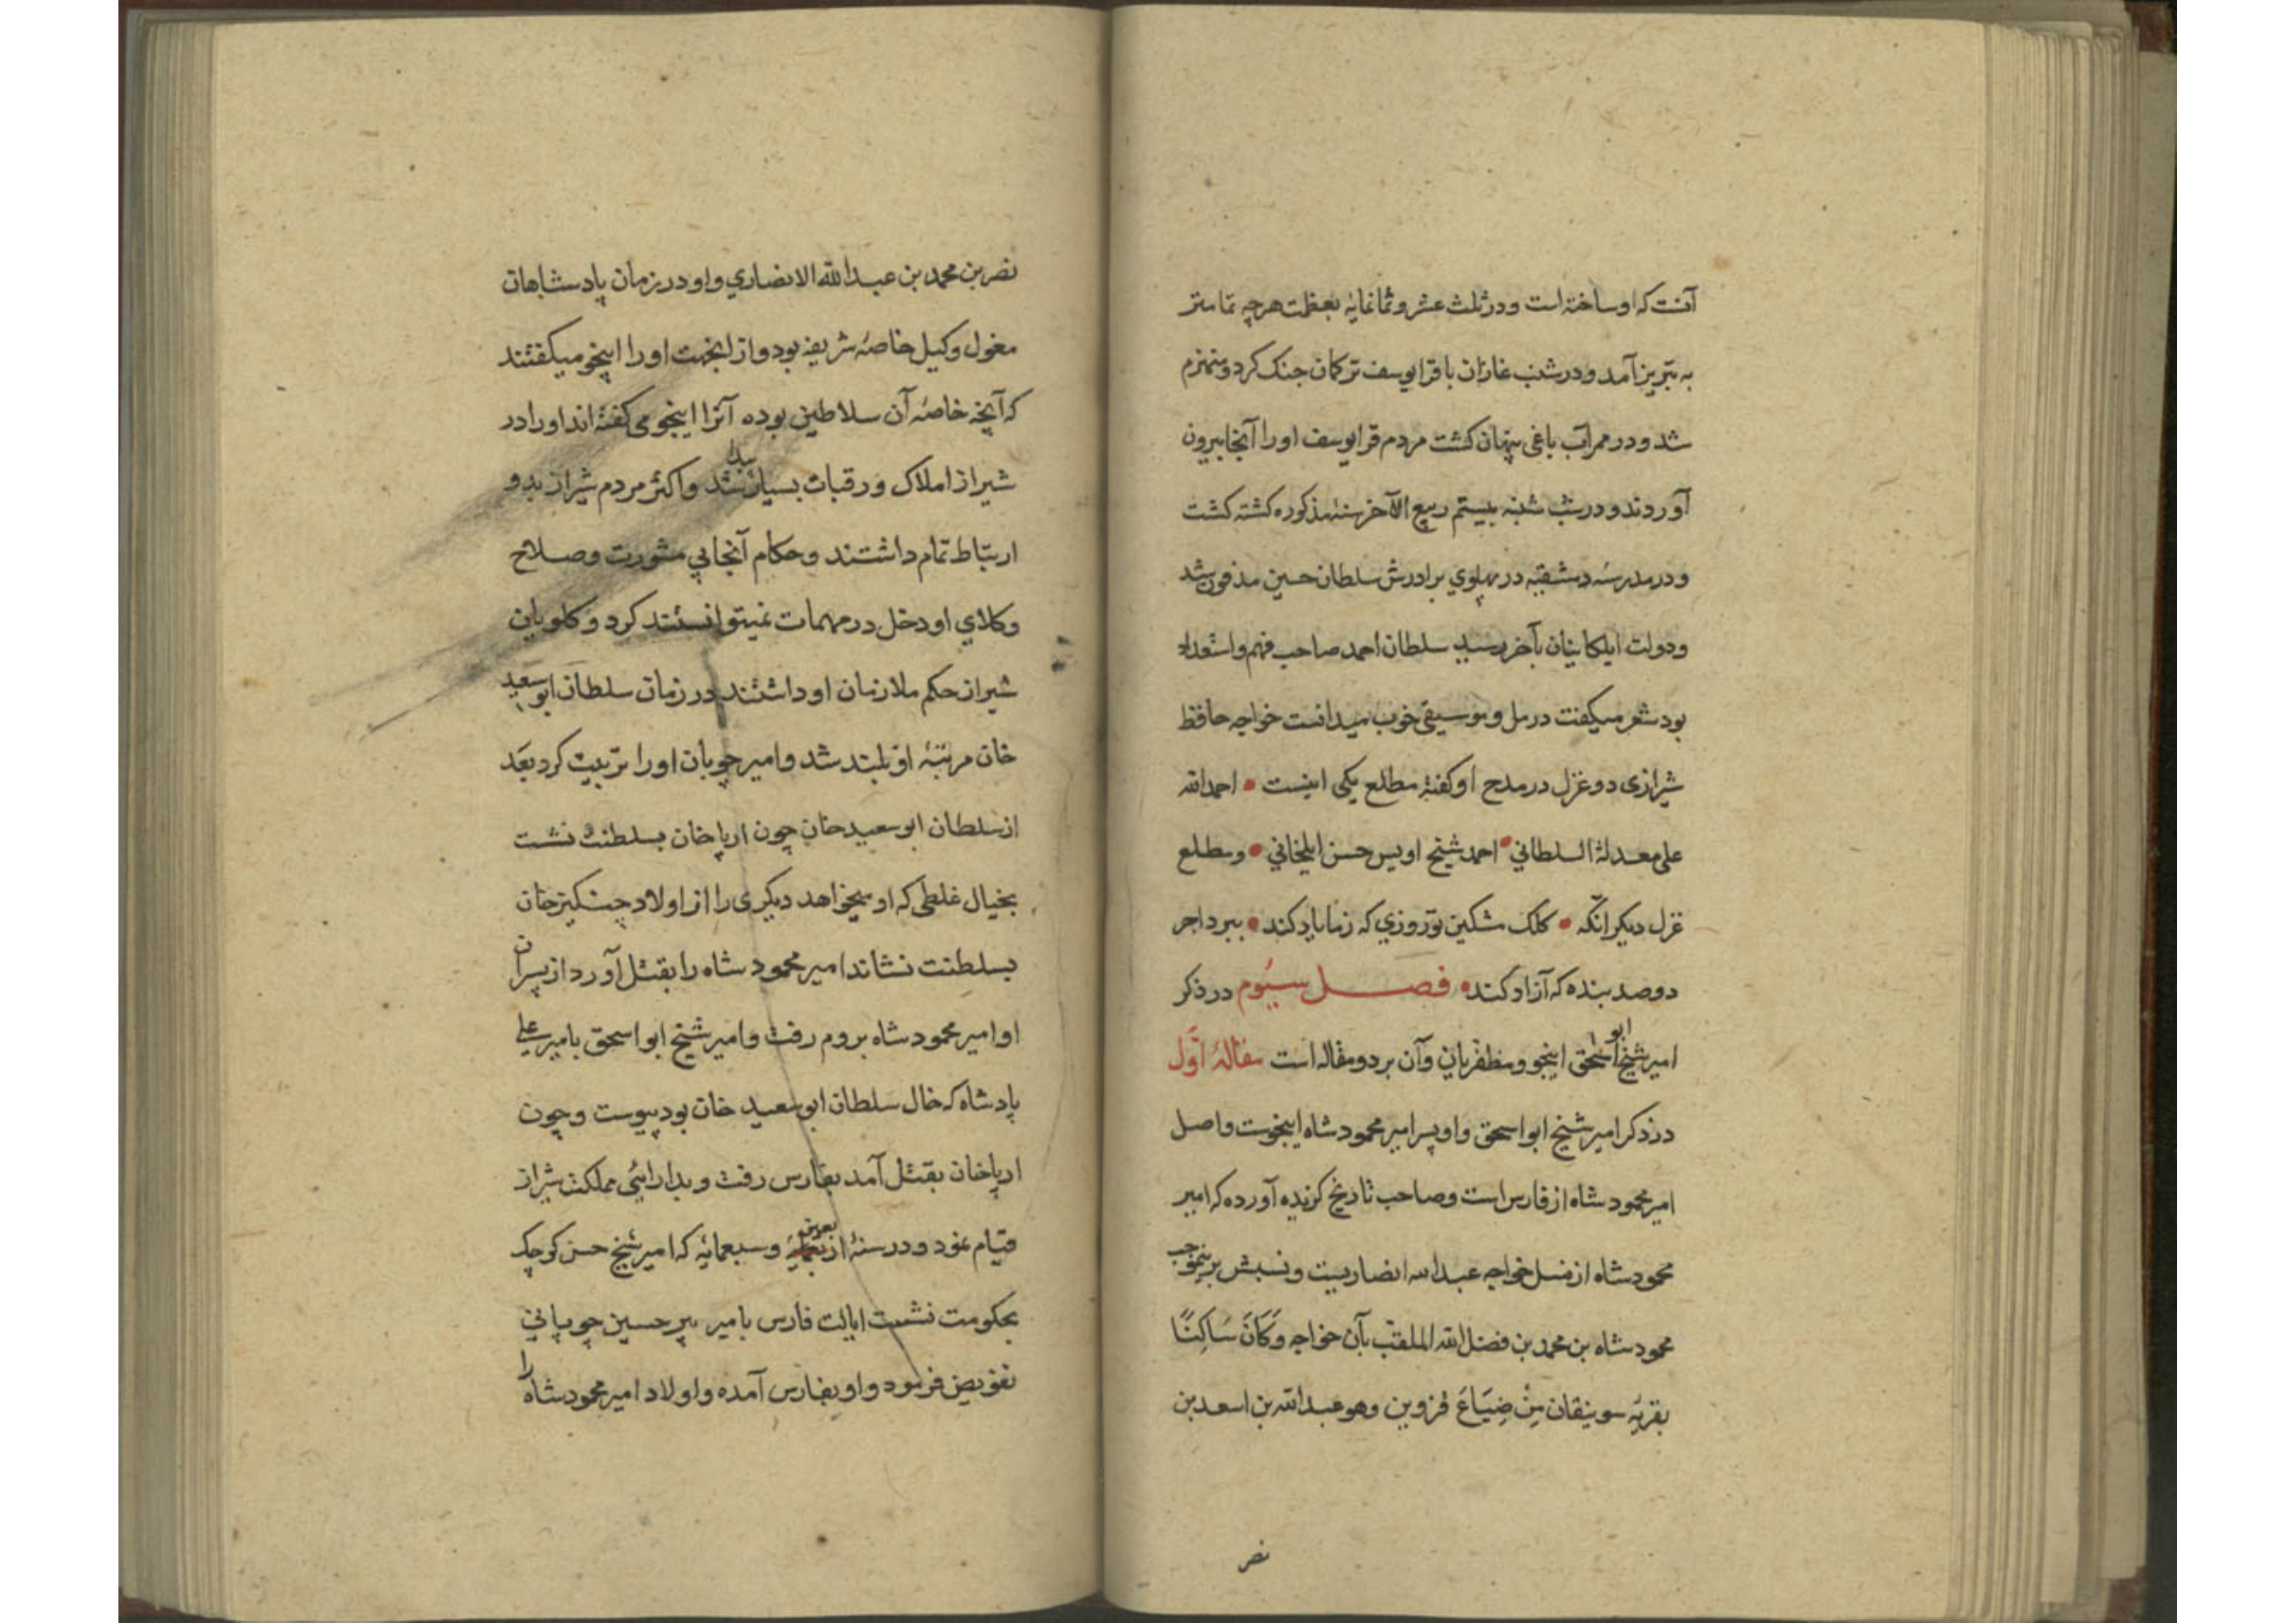 آنست که او ساخته است و در ثلث عشر و ثمانمایه بعظمت هرچه تمامتر
به تبریز آمد و در شنب غازان با قرایوسف ترکمان جنک کرد و منهزم
شد و در ممر آب باغی پنهان کشت مردم قرایوسف او را آنجا بیرون
آوردند و در شب شنبه بیستم ربیع الآخر سنه مذکوره کشته کشت
و در مدرسه دمشقیه در پهلوی برادرش سلطان حسین مدفون شد
و دولت ایلکانیان بآخر رسید سلطان احمد صاحب فهم و استعداد
بود شعر میکفت در رمل و موسیقی خوب میدانست خواجه حافظ
شیرازی دو غزل در مدح او کفته مطلع یکی اینست • احمد الله
علی معدلة السلطانی • احمد شیخ اویس حسن ایلخانی • و مطلع
غزل دیکر انکه • کلک مشکین تو روزی که ز ما یاد کند • ببرد اجر
دو صد بنده که آزاد کند • فصل سیوم در ذکر
امیر شیخ ابو اسحق اینجو و مظفریان و آن بر دو مقاله است مقالۀ اوّل
در ذکر امیر شیخ ابو اسحق و او پسر امیر محمود شاه اینجوست و اصل
امیر محمود شاه از فارس است و صاحب تاریخ کزیده آورده که امیر
محمود شاه از نسل خواجه عبدالله انصاریست و نسبش برینموجب
محمود شاه بن محمد بن فضل الله الملقب بآن خواجه وَکَانَ سَاکِنًا
بقریه سوینقان مِنْ ضِیَاعَ قزوین و هو عبدالله بن اسعد بن
نصر
نصر بن محمد بن عبدالله الانصاری و او در زمان پادشاهان
مغول وکیل خاصه شریفه بود و از اینجهت او را اینجو میکفتند
که آنچه خاصه آن سلاطین بوده آنرا اینجو می کفته اند او را در
شیراز املاک و رقبات بسیار پیدا شد و اکثر مردم شیراز بدو
ارتباط تمام داشتند و حکام آنجا بی مشورت و صلاح
وکلای او دخل در مهمات نمیتوانستند کرد و کلویان
شیراز حکم ملازمان او داشتند در زمان سلطان ابو سعید
خان مرتبۀ او بلند شد و امیر چوپان او را تربیت کرد بعد
از سلطان ابو سعید خان چون ارپا خان بسلطنت نشست
بخیال غلطی که او میخواهد دیکری را از اولاد چنکیز خان
بسلطنت نشاند امیر محمود شاه را بقتل آورد از پسران
او امیر محمود شاه بروم رفت و امیر شیخ ابو اسحق بامیر علی
پادشاه که خال سلطان ابو سعید خان بود پیوست و چون
ارپا خان بقتل آمد بفارس رفت و بدارائی مملکت شیراز
قیام نمود و در سنۀ اربعین و سبعمایه که امیر شیخ حسن کوچک
بحکومت نشست ایالت فارس بامیر پیر حسین چوپانی
تفویض فرمود و او بفارس آمده و اولاد امیر محمود شاه را